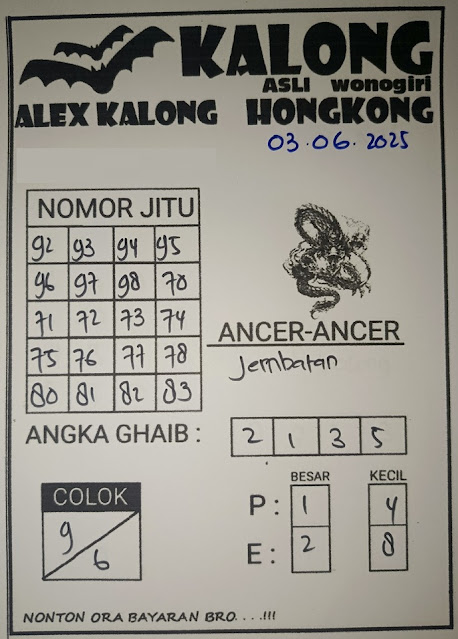 KALONG
ASLI wonogiri
ALEX KALONG HONGKONG
03.06.2025
NOMOR JITU
92 93 94 95
96 97 98 70
71 72 73 74
75 76 77 78
80 81 82 83
ANCER-ANCER
Jembatan
ANGKA GHAIB : 2 1 3 5
COLOK
9 6
BESAR KECIL
P : 1 4
E : 2 8
NONTON ORA BAYARAN BRO. . . .!!!